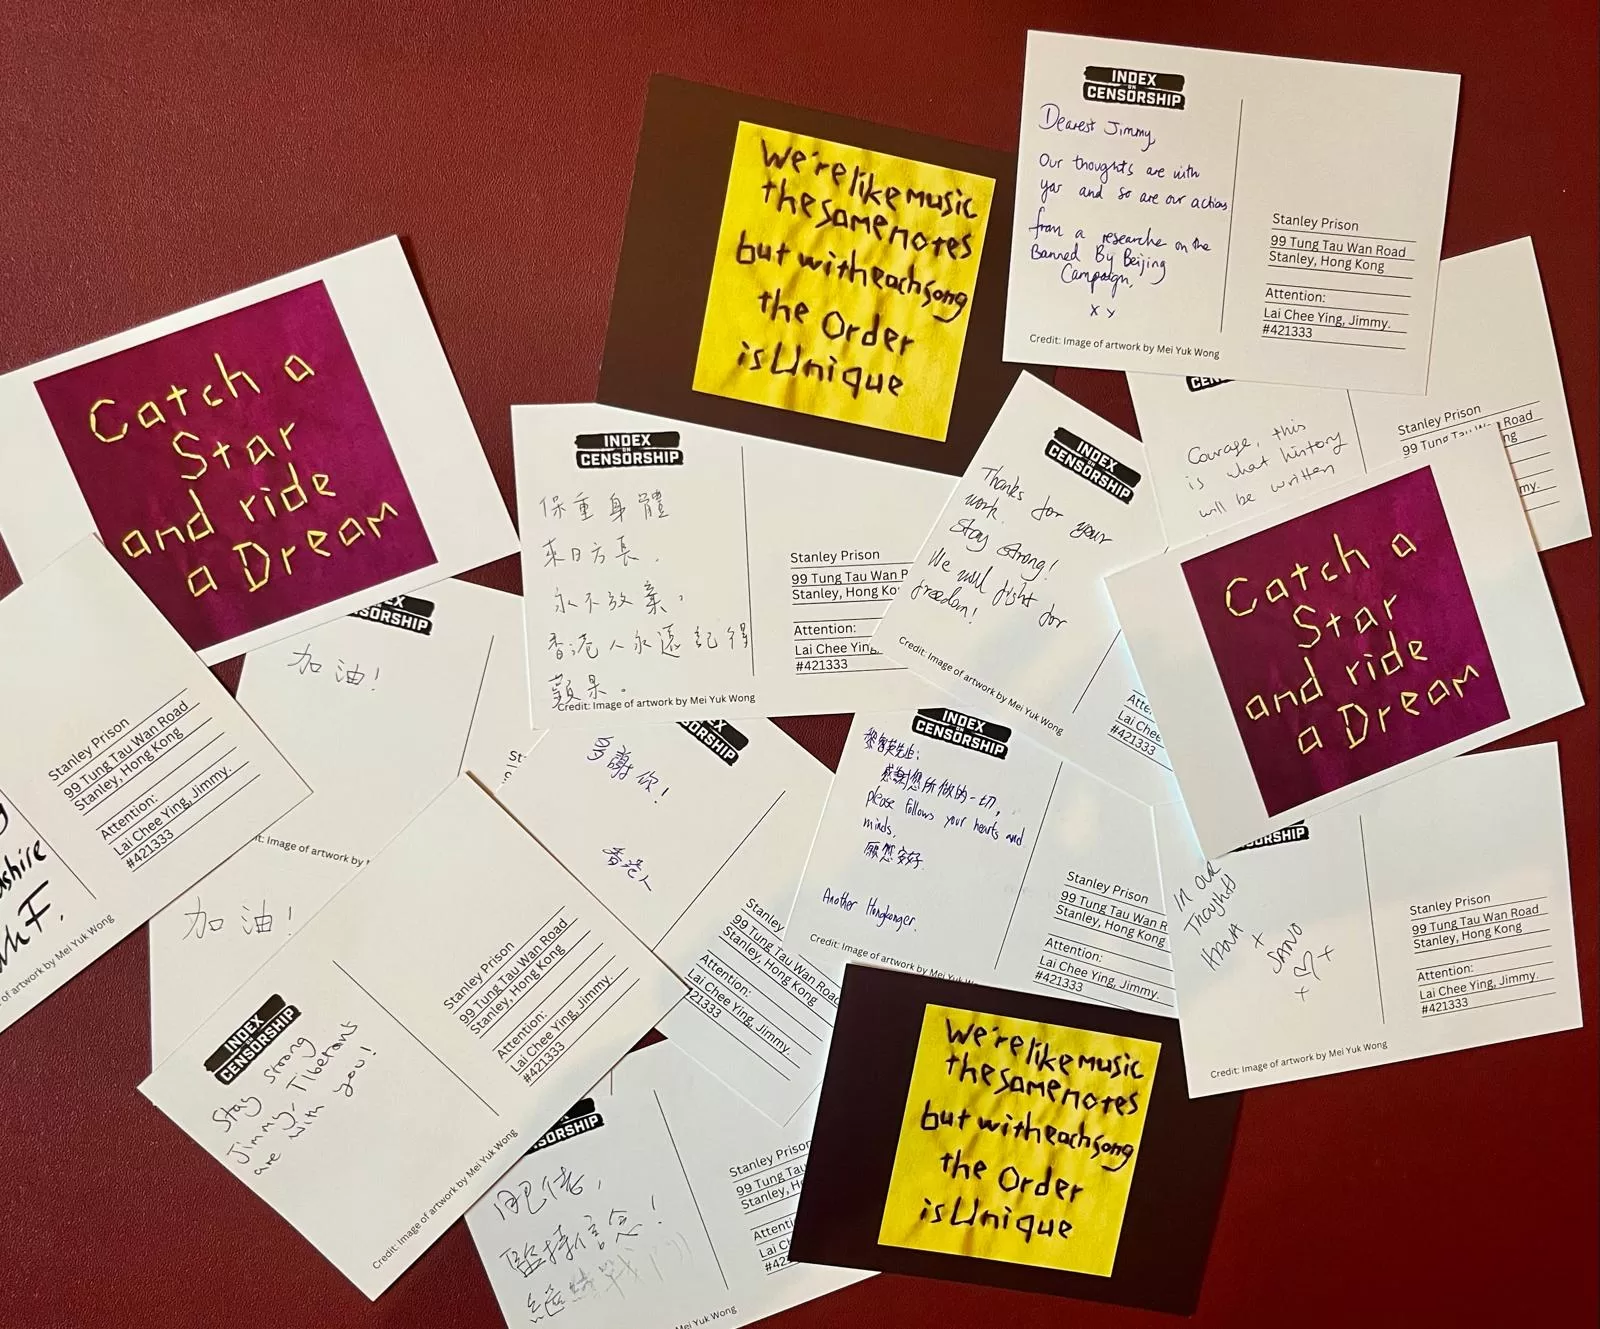 INDEX
ON
CENSORSHIP
Dearest Jimmy,
Our thoughts are with
you and so are our actions
from a researcher on the
Banned By Beijing
Campaign,
x x
Credit: Image of artwork by Mei Yuk Wong
Stanley Prison
99 Tung Tau Wan Road
Stanley, Hong Kong
Attention:
Lai Chee Ying, Jimmy.
#421333
We're like music
the same notes
but with each song
the Order
is Unique
Catch a
Star
and ride
a Dream
INDEX
ON
CENSORSHIP
保重身體
來日方長.
永不放棄,
香港人永遠記得
蘋果。
Credit: Image of artwork by Mei Yuk Wong
Stanley Prison
99 Tung Tau Wan R
Stanley, Hong Ko
Attention:
Lai Chee Ying,
#421333
INDEX
ON
CENSORSHIP
Thanks for your
work.
Stay strong!
We will fight for
freedom!
Credit: Image of artwork by Mei Yuk Wong
Atte
Lai Chee
#421333
CEN
Courage, this
is what history
will be written
Stanley Prison
99 Tung Tau Wan Road
ng
my.
Catch a
Star
and ride
a Dream
EX
SORSHIP
加油!
it: Image of artwork by
St
Stanley Prison
99 Tung Tau Wan Road
Stanley, Hong Kong
Attention:
Lai Chee Ying, Jimmy.
#421333
shire
F.
of artwork by Mei Yuk Wong
加油!
多謝你!
香港人
Stanley
99 Tung Tau Wan Road
Stanley, Hong Kong
Attention:
Lai Chee Ying, Jimmy.
#421333
INDEX
ON
CENSORSHIP
黎智英先生:
感謝您所做的一切,
please follows your hearts and
minds,
願您安好
Another Hongkonger.
Credit: Image of artwork by Mei
Stanley Prison
99 Tung Tau Wan R
Stanley, Hong Kong
Attention:
Lai Chee Ying, Jimmy.
#421333
ORSHIP
In our
Thoughts
x
+
+
Stanley Prison
99 Tung Tau Wan Road
Stanley, Hong Kong
Attention:
Lai Chee Ying, Jimmy.
#421333
Credit: Image of artwork by Mei Yuk Wong
INDEX
ON
CENSORSHIP
Stay Strong
Jimmy- Tibetans
are with you!
Stanley Prison
99 Tung Tau Wan Road
Stanley, Hong Kong
Attention:
Lai Chee Ying, Jimmy.
#421333
Credit: Image of artwork by Mei Yuk Wong
SORSHIP
肥佬,
堅持信念!
Stanley Prison
99 Tung Tau
Stanley, H
Attenti
Lai C
#42
Mei Yuk Wong
We're like music
the same notes
but with each song
the Order
is Unique